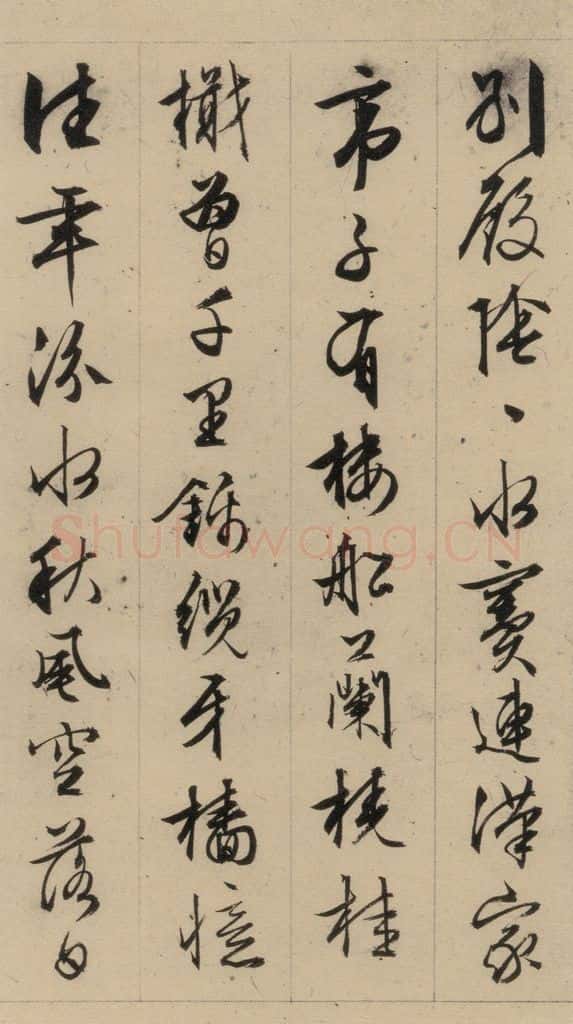 别殿陰〻水竇連漢家
帝子有樓船蘭橈桂
檝曾千里錦纜牙檣憶
往年汾水秋風空落日
Shufawang.CN